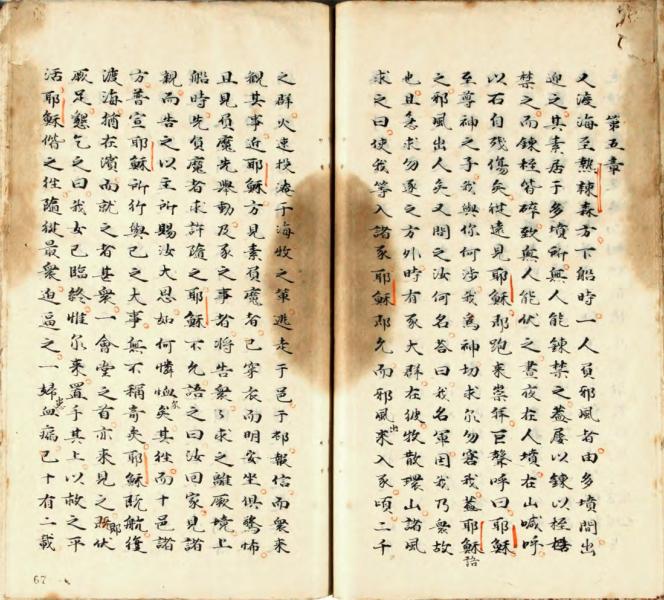 第五章
又渡海至熱棘森方下船時一人負邪風者由多墳間出
迎之其素居于多墳所無人能鍊禁之蓋屢以鍊以桎梏
禁之而鍊桎皆碎致無人能伏之晝夜在人墳在山喊呼
以石自殘傷矣從遠見耶穌即跑來崇拜巨聲呼曰耶穌
至尊神之子我與你何涉我為神切求尔勿害我蓋耶穌語
之邪風出人矣又問之汝何名答曰我名軍因我乃衆故
也且急求勿逐之方外時有豕大群在彼牧散環山諸風
求之曰使我等入諸豕耶穌即允而邪風出來入豕頃二千
之群火速投淹于海牧之軍逃走于邑于郊報信而衆來
観其事近耶穌方見素負魔者已穿衣而明安坐俱驚怖
且見負魔先舉動及豕之事者將告衆了求之離厥境上
船時先負魔者求許隨之耶穌不允語之曰汝回家見諸
親而告之以主所賜汝大恩如何憐恤尔矣其徃而十邑諸
方普宣耶穌所行與己之大事無不稱奇矣耶穌既航復
渡海猶在濱而就之者甚衆一會堂之首亦來見之即伏
厥足懇乞之曰我女已臨終惟尔來置手其上以救之平
活耶穌偕之徃隨從最衆迫逼之一婦患血漏已十有二載
67